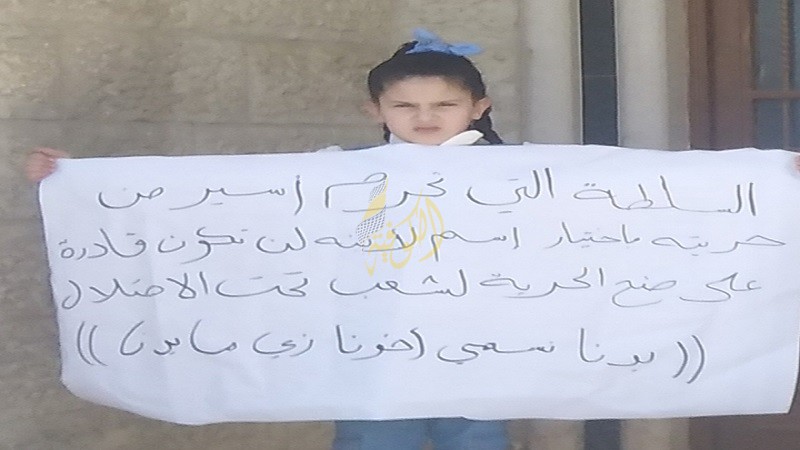 السلطة التي تحرم أسير من
حريته باختيار اسم لابنه لن تكون قادرة
على منح الحرية لشعب تحت الاحتلال
((بدنا نسمي أخونا زي ما بدنا))
الكوفية